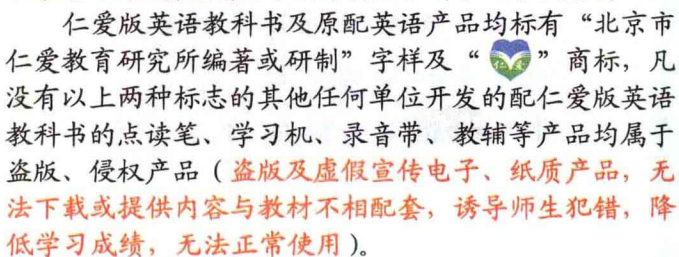 仁爱版英语教科书及原配英语产品均标有“北京市
仁爱教育研究所编著或研制”字样及“仁爱”商标，凡
没有以上两种标志的其他任何单位开发的配仁爱版英语
教科书的点读笔、学习机、录音带、教辅等产品均属于
盗版、侵权产品（盗版及虚假宣传电子、纸质产品，无
法下载或提供内容与教材不相配套，诱导师生犯错，降
低学习成绩，无法正常使用）。